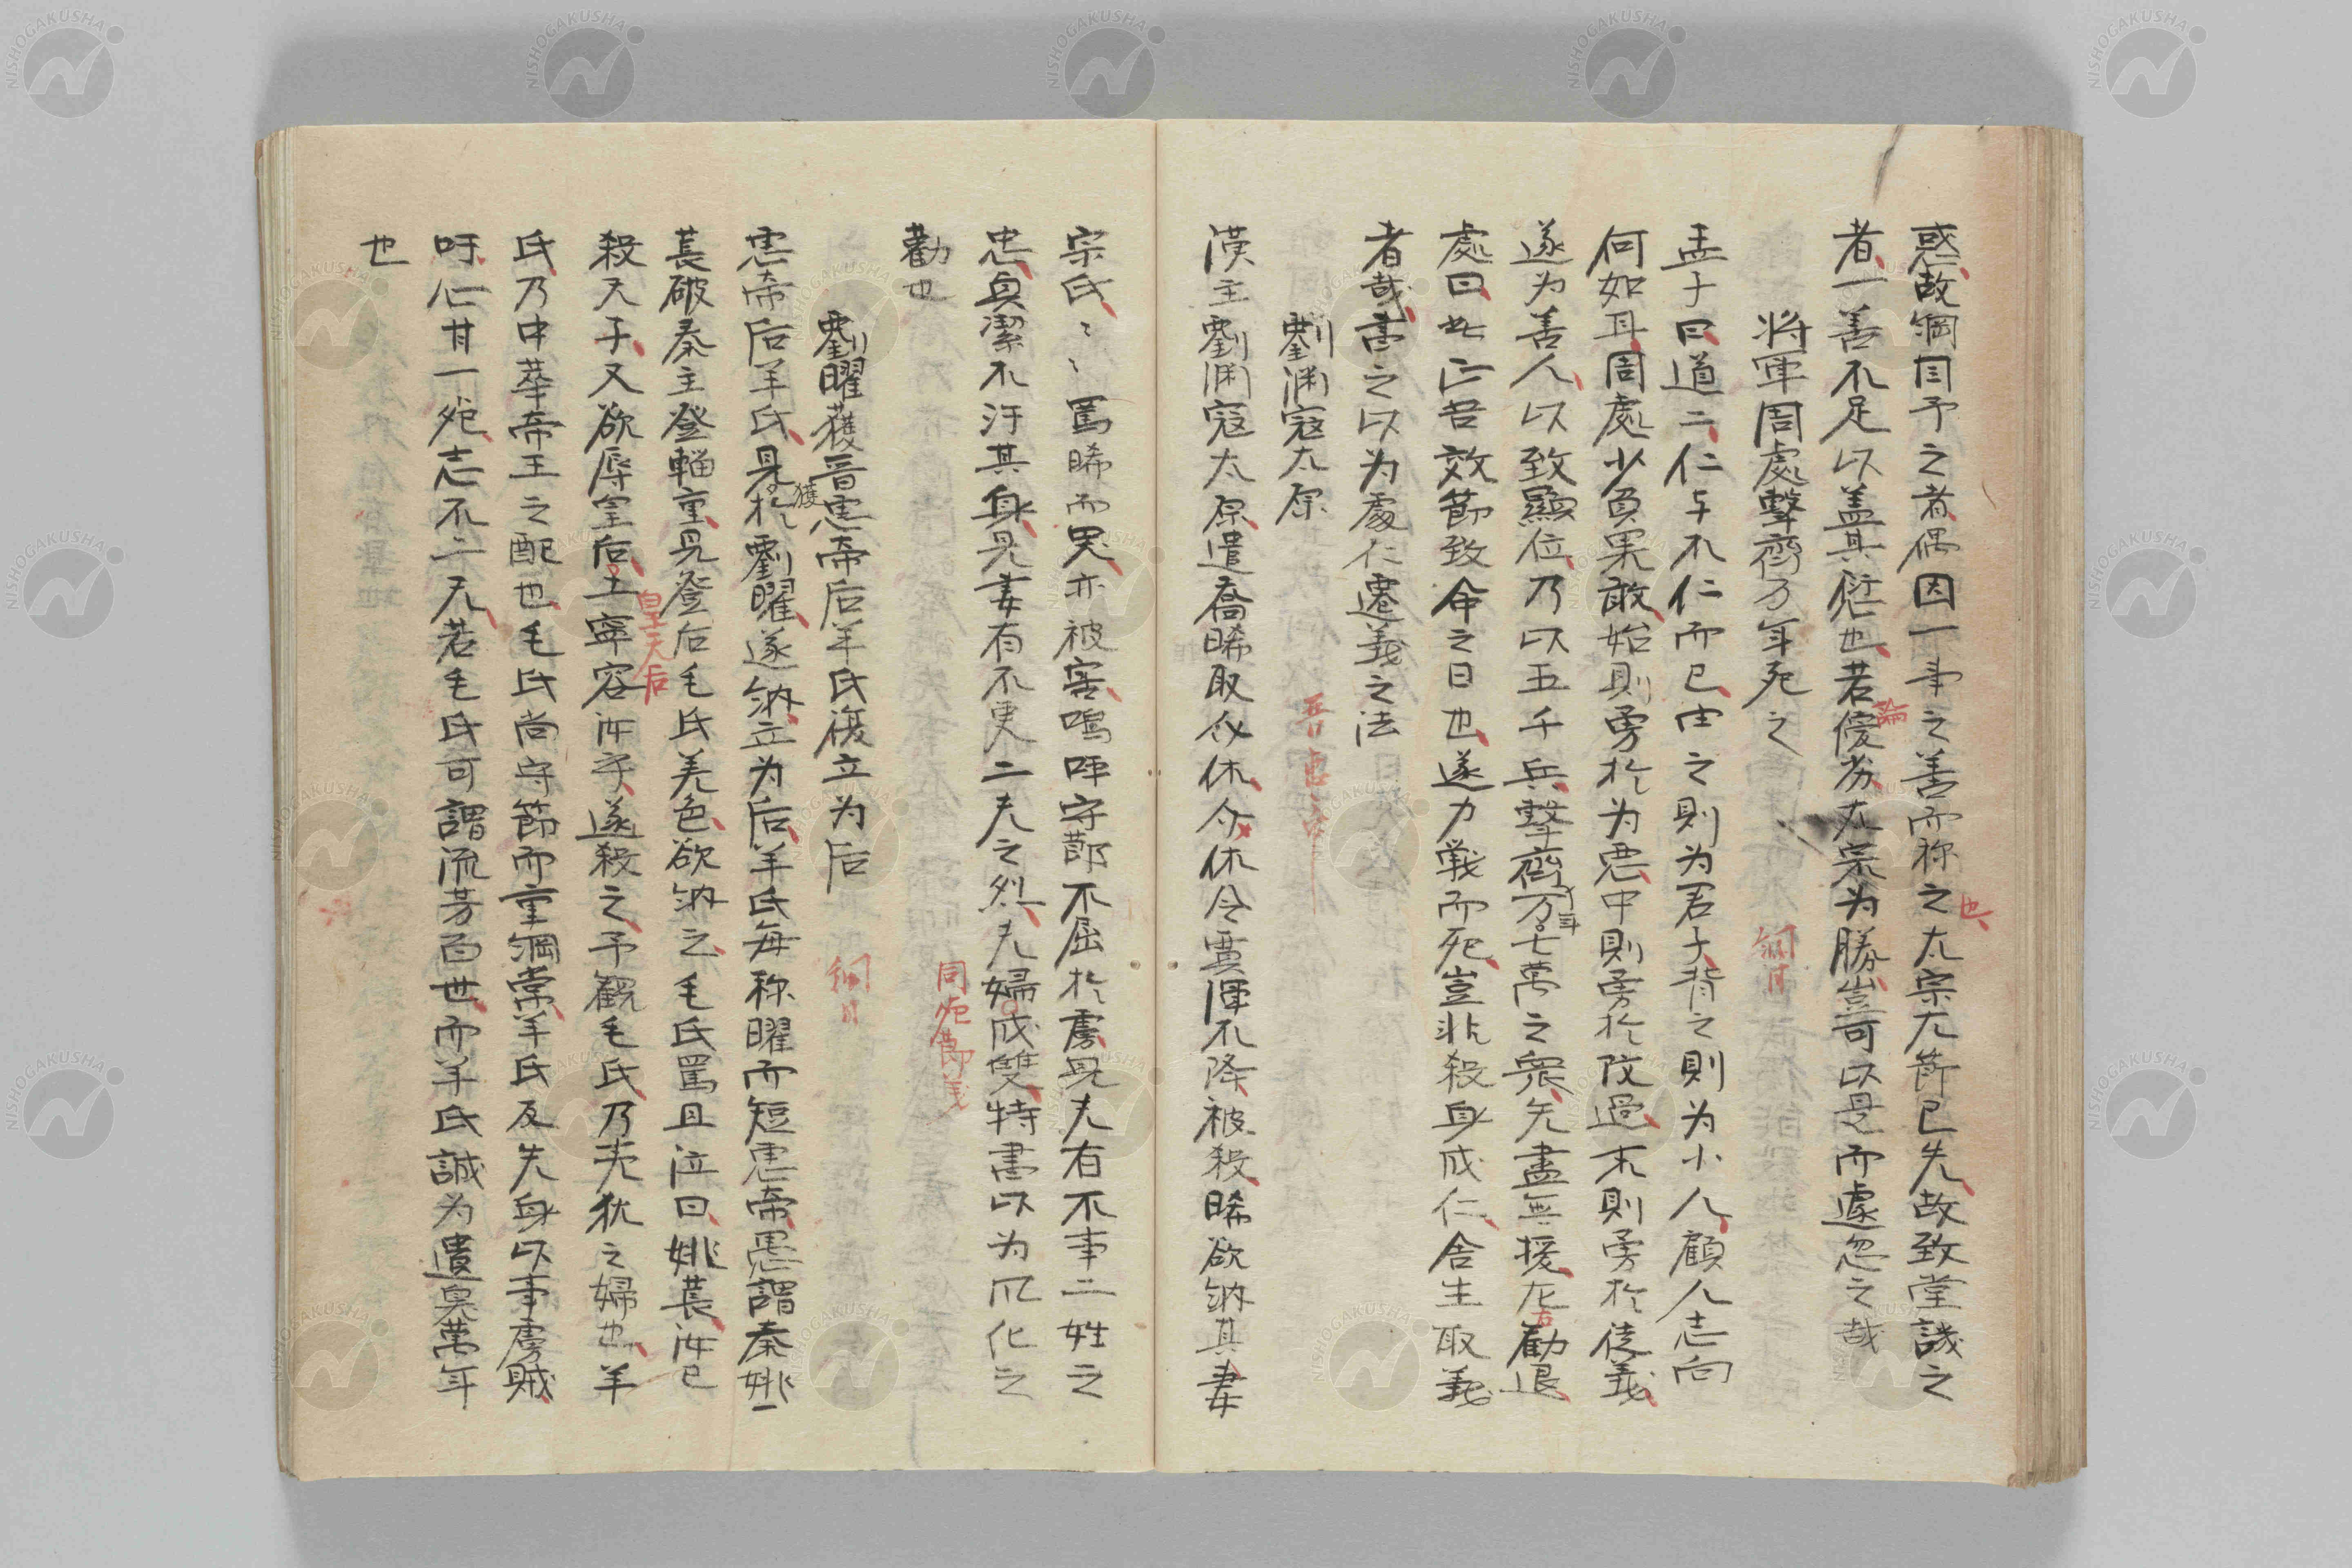 惑故綱目予之者偶因一事之善而称之太宗大節已失故致堂譏之
也
者一善不足以盖其愆也若優劣太宗为勝豈可以是而遽忽之哉
論
将軍周處擊齊万年死之
綱目
孟子曰道二仁与不仁而已由之則为君子背之則为小人顧人志向
何如耳周處少負果敢始則勇於为悪中則勇於改過末則勇於徒義
遂为善人以致顯位乃以五千兵擊齊万七萬之衆矢盡無援左勸退
年
右
處曰此正吾效節致命之日也遂力戦而死豈非殺身成仁舍生取義
者哉書之以为處仁遷義之法
劉渊寇太原
漢主劉渊寇太原遣喬晞取介休介休令賈渾不降被殺晞欲納其妻
宗氏〻〻罵晞而哭亦被害嗚呼守節不屈於虜見夫有不事二姓之
忠貞潔不汙其身見妻有不更二夫之烈夫婦成雙特書以为风化之
勸也
同死節義
劉曜獲晋恵帝后羊氏復立为后
綱目
恵帝后羊氏見於劉曜遂納立为后羊氏毎称曜而短恵帝愚謂秦姚
獲
萇破秦主登輜重見登后毛氏美色欲納之毛氏罵且泣曰姚萇汝已
殺天子又欲辱皇后土寧容汝乎遂殺之予観毛氏乃夷狄之婦也羊
皇天后
氏乃中華帝王之配也毛氏尚守節而重綱常羊氏反失身以事虜賊
吁心甘一死志不二天若毛氏可謂流芳百世而羊氏誠为遺臭萬年
也
NISHOGAKUSHA